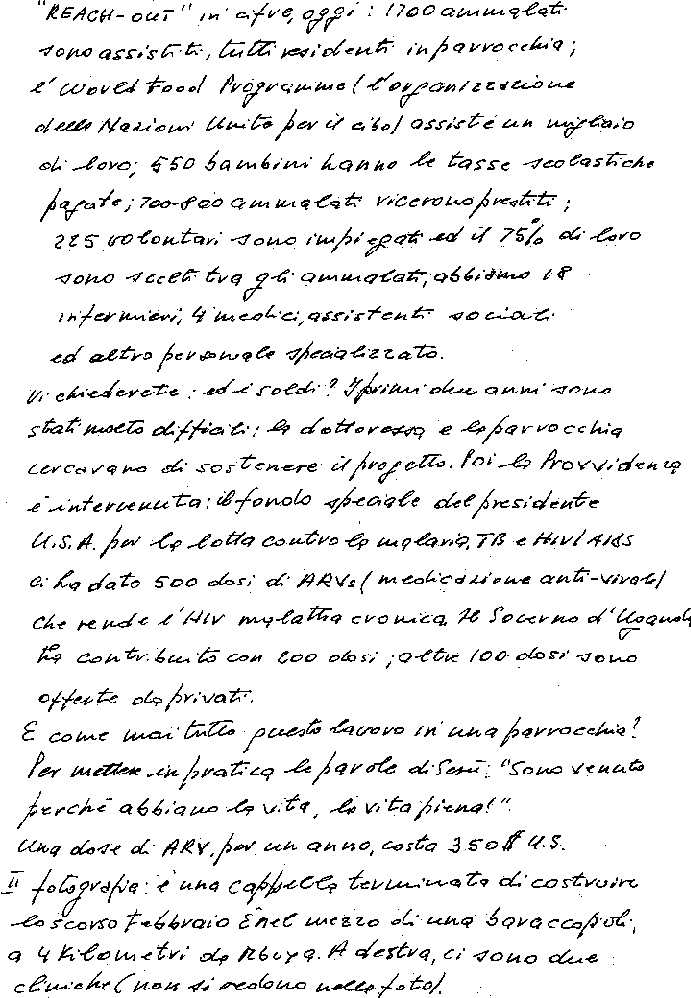 "REACH-OUT" in cifre, oggi: 1700 ammalati
sono assistiti, tutti residenti in parrocchia;
il World Food Programme (l'organizzazione
delle Nazioni Unite per il cibo) assiste un migliaio
di loro; 550 bambini hanno le tasse scolastiche
pagate; 700-800 ammalati ricevono prestiti;
225 volontari sono impiegati ed il 75% di loro
sono scelti tra gli ammalati, abbiamo 18
infermieri, 4 medici, assistenti sociali
ed altro personale specializzato.
Vi chiederete: ed i soldi? I primi due anni sono
stati molto difficili: la dottoressa e la parrocchia
cercavano di sostenere il progetto. Poi la Provvidenza
è intervenuta: il fondo speciale del presidente
U.S.A. per la lotta contro la malaria, TB e HIV/AIDS
ci ha dato 500 dosi di ARVs (medicazione anti-virale)
che rende l'HIV malattia cronica. Il Governo d'Uganda
ha contribuito con 200 dosi; altre 100 dosi sono
offerte da privati.
E come mai tutto questo lavoro in una parrocchia?
Per mettere in pratica le parole di Gesù: "Sono venuto
perché abbiano la vita, la vita piena!".
Una dose di ARV, per un anno, costa 350$ U.S.
II fotografia: è una cappella terminata di costruire
lo scorso Febbraio È nel mezzo di una baraccopoli,
a 4 Kilometri da Mbuya. A destra, ci sono due
cliniche (non si vedono nella foto).